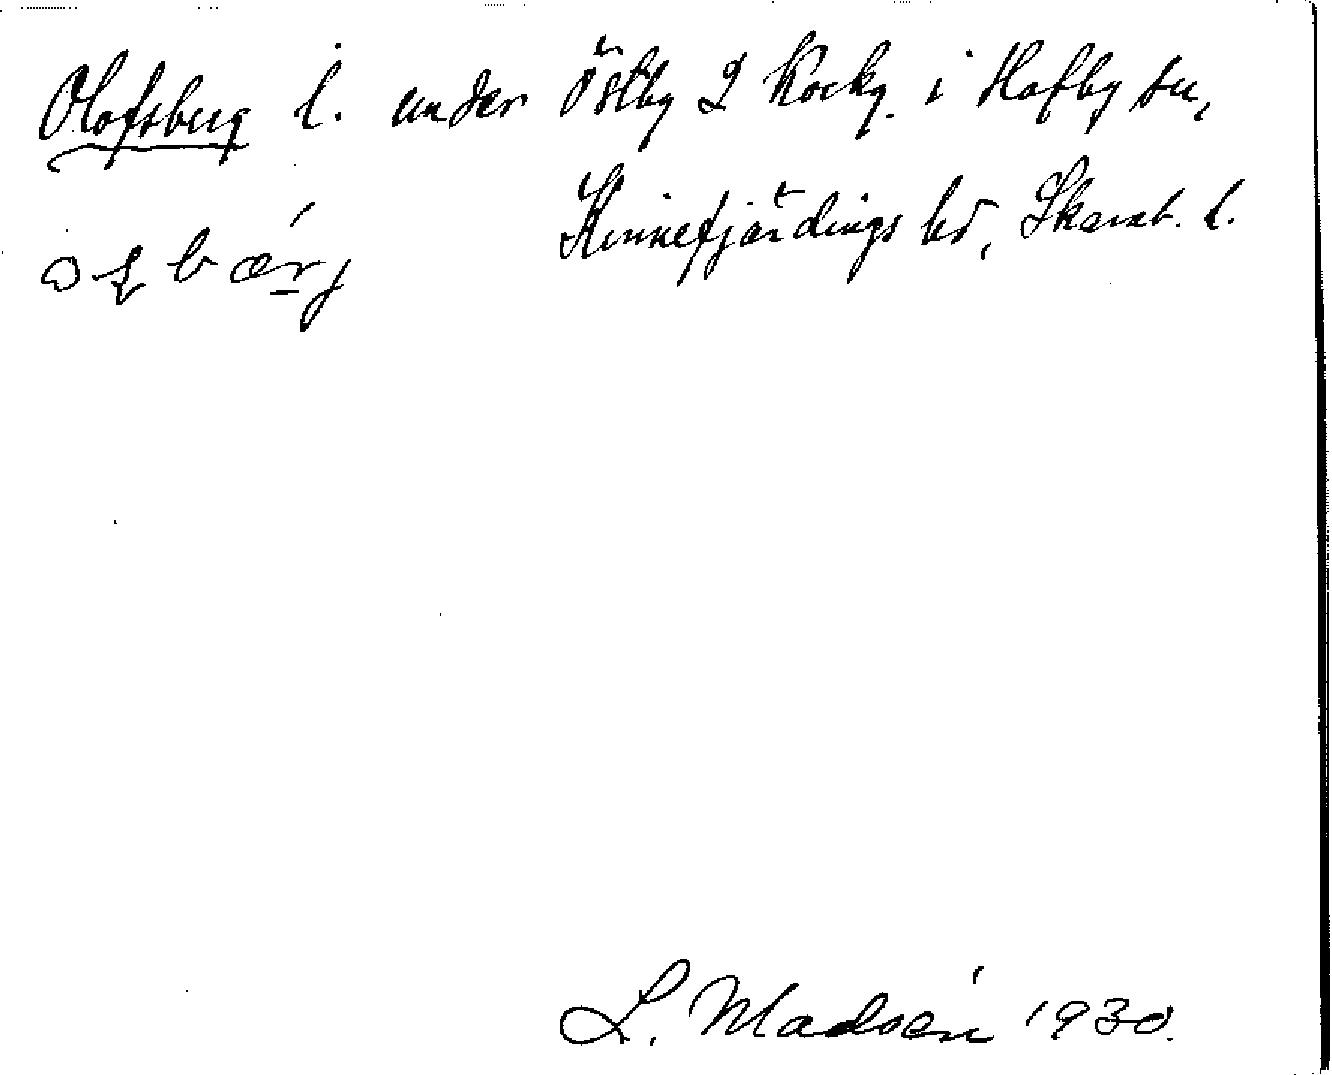 Olofsberg l. under Östby 2 Kocky. i Hafby sn,
Kinnefjärdings hd, Skarab. l.
L. Madsén 1930.